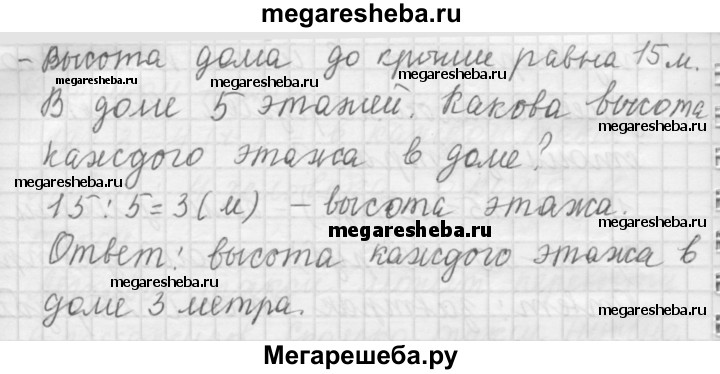 megaresheba.ru
- Высота дома до крыши равна 15 м.
megaresheba.ru megaresheba.ru
В доме 5 этажей. Какова высота
megaresheba.ru
каждого этажа в доме?
megaresheba.ru
15 : 5 = 3 (м) – высота этажа.
megaresheba.ru
Ответ: высота каждого этажа в
megaresheba.ru megaresheba.ru
доме 3 метра.
Мегарешеба.ру